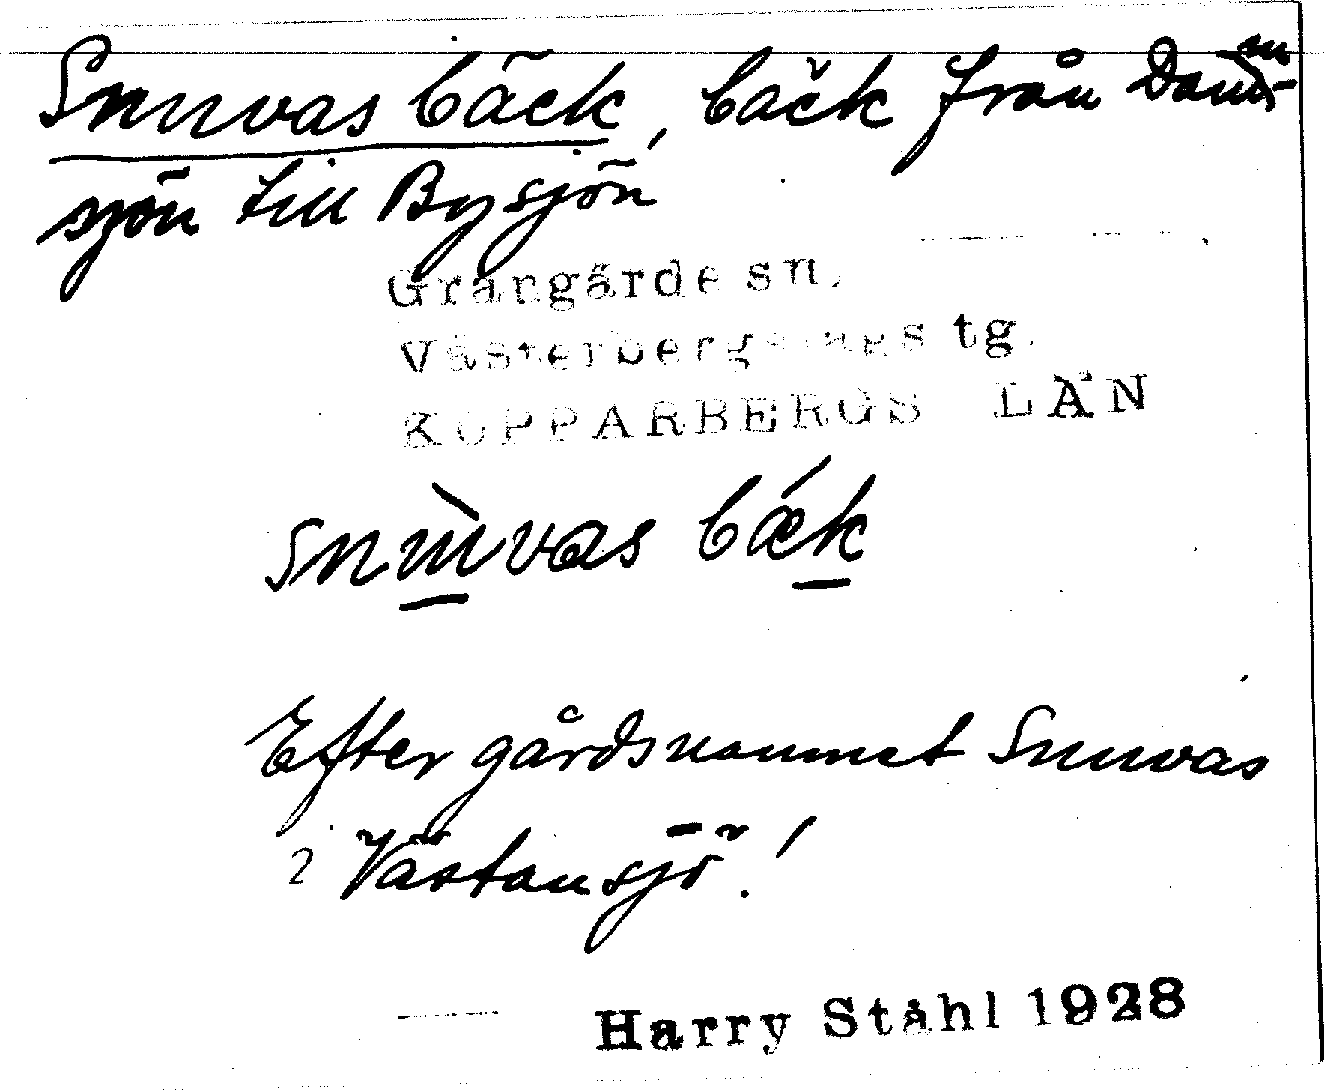 Snuvas bäck, bäck från Damm-
sjön till Bysjön
Grangärde sn.
Västerbergslags tg.
KOPPARBERGS LÄN
snùvas bák
Efter gårdsnamnet Snuvas
Västansjö!
Harry Ståhl 1928